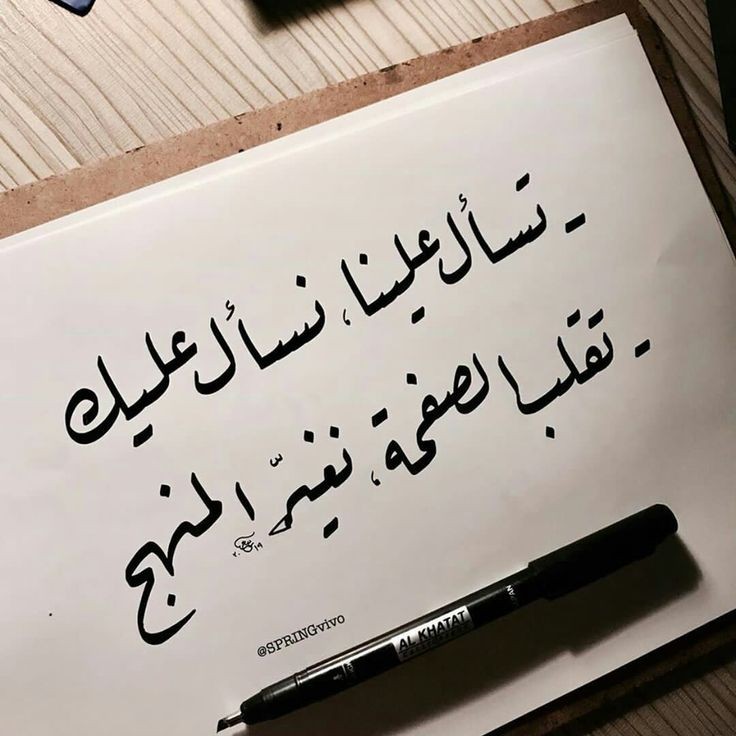 - تسأل علينا، نسأل عليك
- تقلب الصفحة، نغيّر المنهج
@SPRINGvivo
AL KHATAT